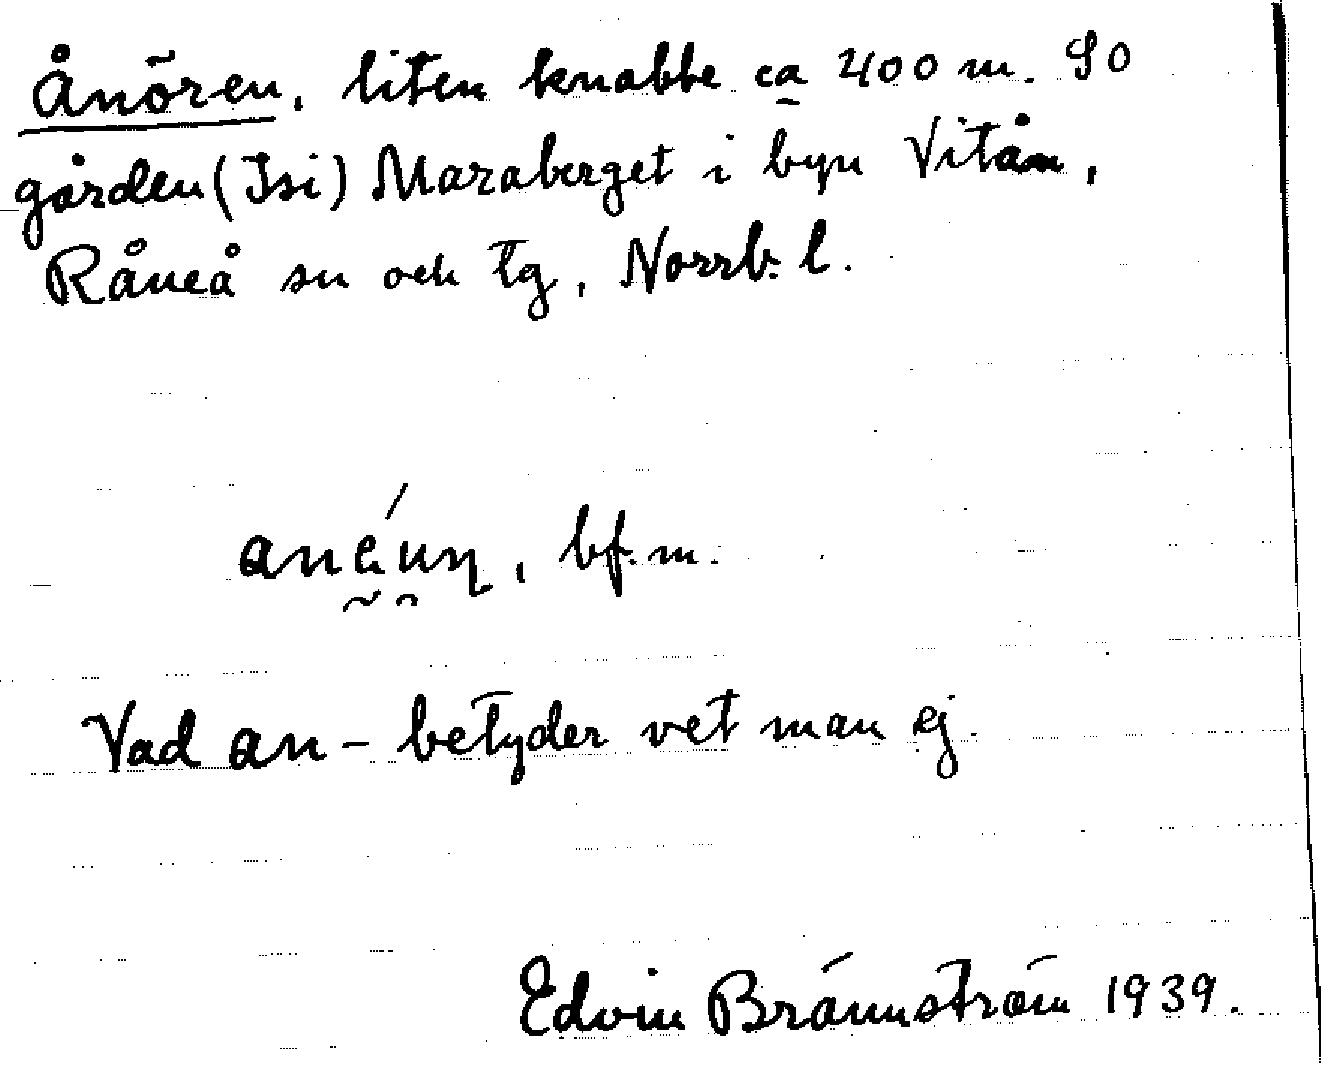 Ånören, liten knabbe ca 400 m. SO
gården (Isi) Maraberget i byn Vitån,
Råneå sn och tg, Norrb. l.
, bf. m.
Vad an- betyder vet man ej.
Edvin Brännström 1939.